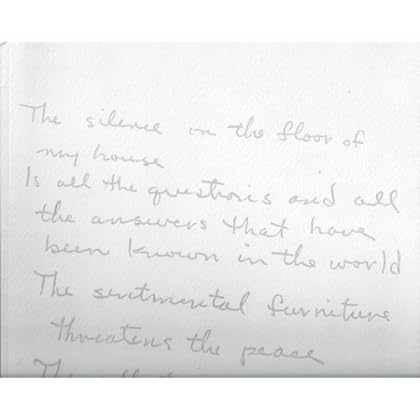 The silence in the floor of
my house
Is all the questions and all
the answers that have
been known in the world
The sentimental furniture
threatens the peace
The